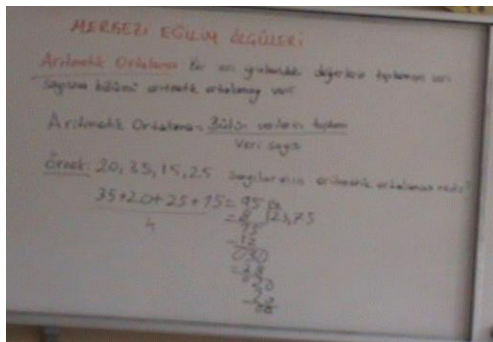 MERKEZİ EĞİLİM ÖLÇÜLERİ
Aritmetik Ortalama: Bir veri grubundaki değerlerin toplamının veri
sayısına bölümü aritmetik ortalamayı verir
Aritmetik Ortalama = Bütün verilerin toplamı
Veri sayısı
Örnek: 20, 35, 15, 25 sayılarının aritmetik ortalaması nedir?
35+20+25+15 = 95
4
23,75